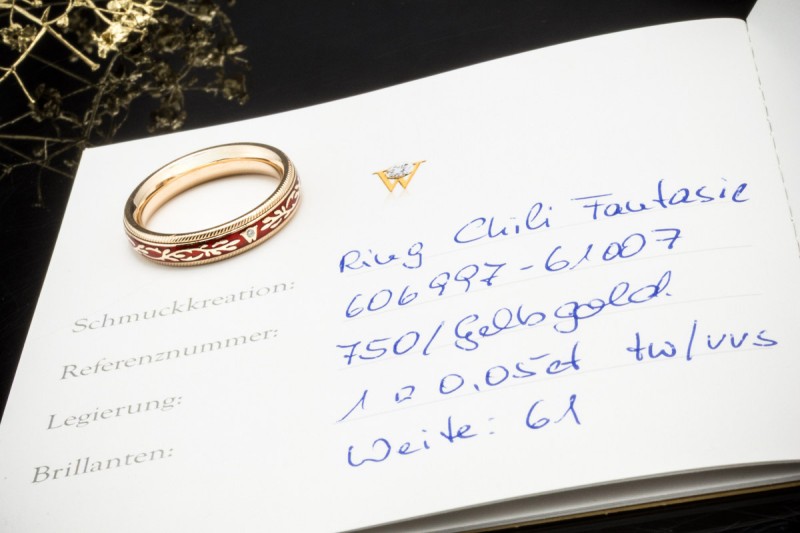 W
Schmuckkreation: Ring Chili Fantasie
Referenznummer: 606997-61007
Legierung: 750/Gelbgold
Brillanten: 1 ¤ 0.05ct tw/vvs
Weite: 61